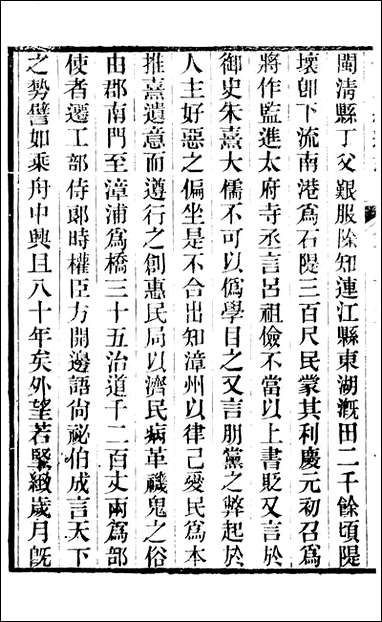 閩清縣丁父艱服除知連江縣東湖溉田二千餘頃隄
壞卽下流南港爲石隄三百尺民蒙其利慶元初召爲
將作監進太府寺丞言呂祖儉不當以上書貶又言於
御史朱熹大儒不可以僞學目之又言朋黨之弊起於
人主好惡之偏坐是不合出知漳州以律己愛民爲本
推熹遺意而遵行之創惠民局以濟民病革禨鬼之俗
由郡南門至漳浦爲橋三十五治道千二百丈兩爲部
使者遷工部侍郞時權臣方開邊語尙祕伯成言天下
之勢譬如乘舟中興且八十年矣外望若緊緻歲月旣